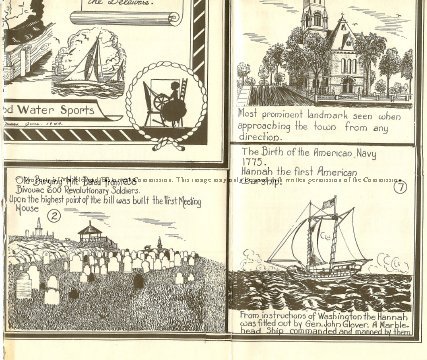 the Delawares.
Water Sports
June. 1949.
Most prominent landmark seen when
approaching the town from any
direction.
Old Burying Hill Dates from
Bivouac 600 Revolutionary Soldiers.
Upon the highest point of the hill was built the first Meeting
House
2
The Birth of the American Navy
1775.
Hannah the first American
warship.
7
From instructions of Washington the Hannah
was fitted out by Gen. John Glover. A Marble-
head Ship commanded and manned by them
Commission. This image may not be written permission of the Commission.